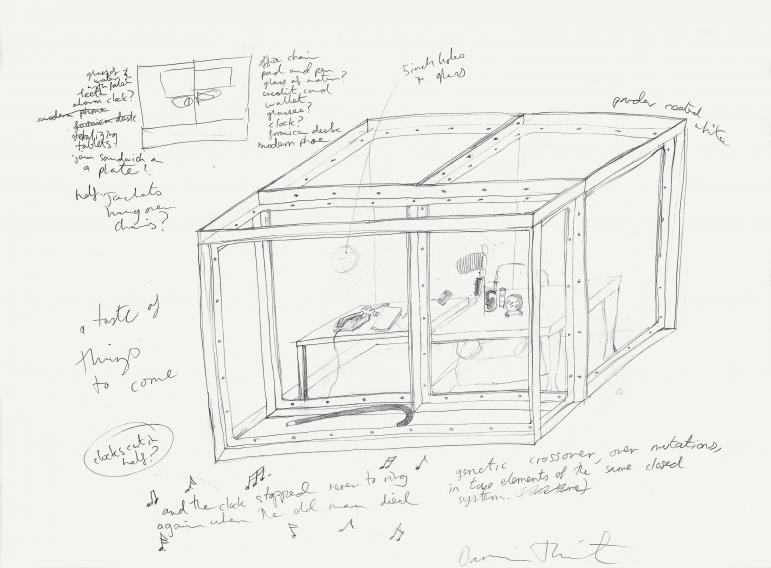 glasses?
water?
with false
teeth
alarm clock?
modern phone
formica desk
tablets?
jam sandwich on
a plate?
half-jackets
hung over
chairs?
office chair
pad and pen
glass of water?
credit card
wallet
glasses?
clock?
formica desk
modern phone
5 inch holes
in glass
powder coated
white
a taste of
things
to come
clocks cut in
half?
and the clock stopped never to ring
again when the old man died
genetic crossover over mutations,
in two elements of the same closed
system.
Damien Hirst